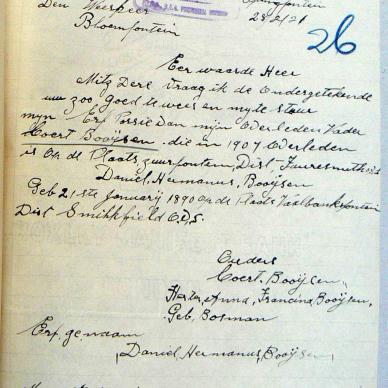 Springfontein
Den Weesheer 28/2/21
Bloemfontein
26
Eer waarde Heer
Mitz Dere Vraag ik de Ondergetekende
uw zoo goed te wees en my te stuur
myn Erf Posie van mijn Overleden Vader
Coert Booÿsen die in 1907 Overleden
is Op de Plaats, zuurfontein, Dist, Fauresmith
Daniel, Hermanus, Booÿsen
Geb 21ste January 1890 Op de Plaats Vaalbankfontein
Dist Smithfield O.V.S.
Ouders
Coert Booÿsen,
Hester, Anna, Francina, Booÿsen,
Geb. Bosman
Erf. genaam
Daniel, Hermanus, Booÿsen